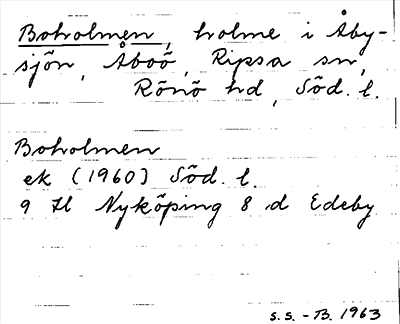 Boholmen, holme i Åby-
sjön, Åboö, Ripsa sn,
Rönö hd, Söd. l.
Boholmen
ek (1960) Söd. l.
9 H Nyköping 8 d Edeby
S.S. - B. 1963